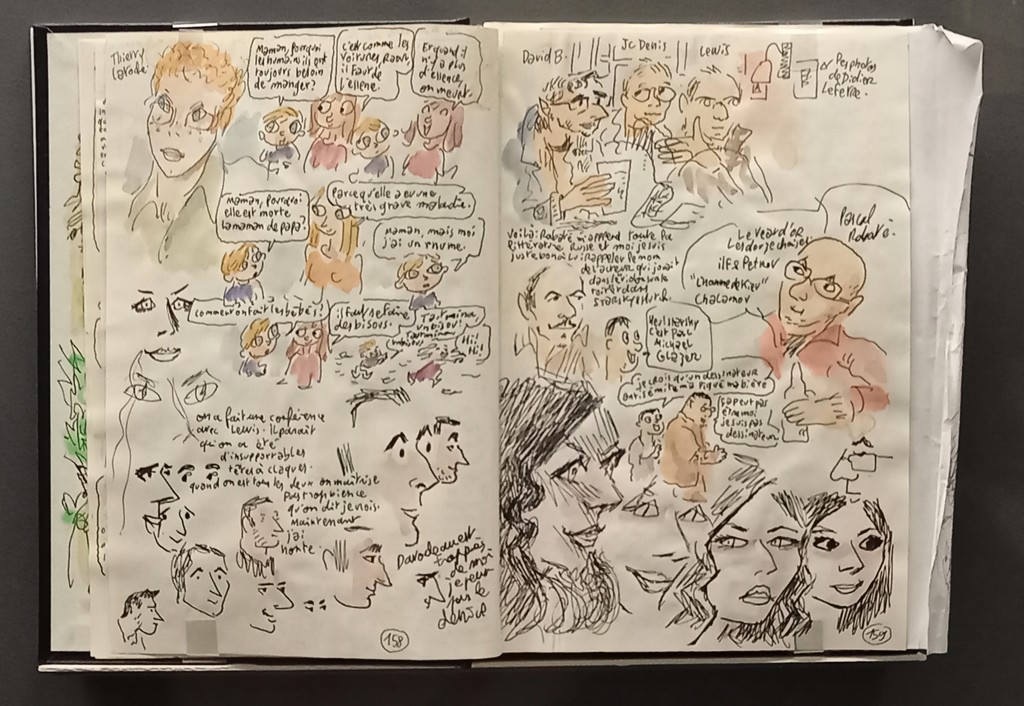 Thierry
Maman, pourquoi
les humains ils ont
toujours besoin
de manger?
C'est comme les
voitures, Raoul
il faut de
l'essence.
Et quand il
n'y a plus
d'essence,
on meurt.
Maman, pourquoi
elle est morte
la maman de papa?
Parce qu'elle a eu une
très grave maladie.
Maman, mais moi
j'ai un rhume.
Comment on fait les bébés?
il faut se faire
des bisous.
un bisou!
Hii!
Hii!
on a fait une conférence
avec Lewis. il paraît
qu'on a été
d'insupportables
têtes à claques.
quand on est tous les deux on maîtrise
pas
qu'on dit je vois.
Maintenant
j'ai
honte.
de moi
je peux
158
David B.
JC Denis
Lewis
Des photos
de Didier
Lefèvre.
Voilà: Rabaté m'apprend toute la
littérature Russe et moi je suis
juste bon à lui rappeler le nom
de l'acteur qui jouait
dans
Starsky et Hutch.
Pascal
Rabaté.
Le veau d'or
Les douze chaises
ilf & Petrov
"L'homme de Kiev"
Chalamov
c'est Paul
Michael
Glazer
je crois qu'un dessinateur
antisémite m'a piqué ma bière
ça peut pas
être moi
je suis pas
dessinateur.
159